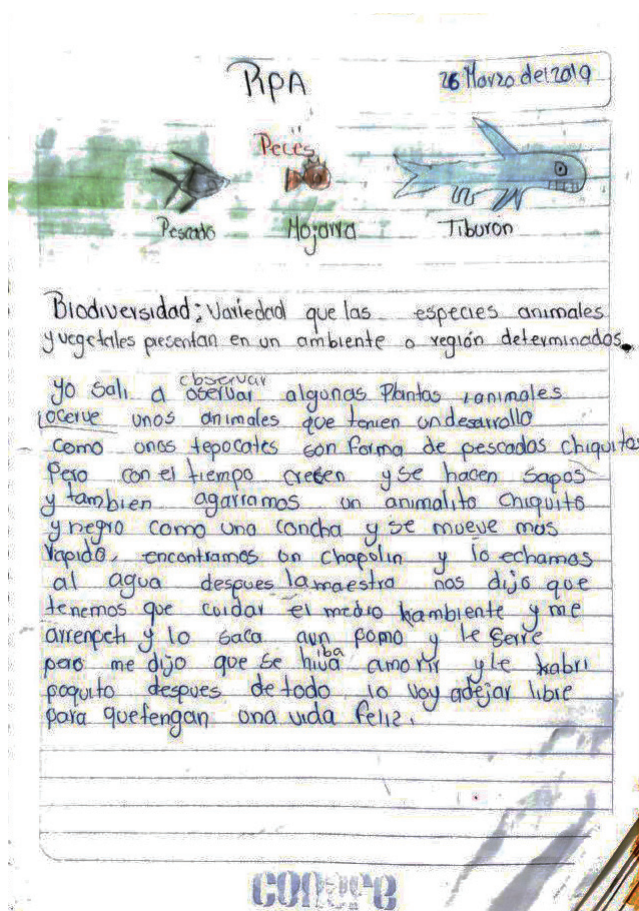 RPA
26 Marzo del 2019
Peces
Pescado Mojarra Tiburón
Biodiversidad: Variedad que las especies animales
y vegetales presentan en un ambiente o región determinados.
observar
yo sali a oservar algunas Plantas i animales
ocerve unos animales que tenien un desarrollo
como unos tepocates son forma de pescados chiquitos
Pero con el tiempo crecen y se hacen sapos
y tambien agarramos un animalito chiquito
y negro como una concha y se mueve mas
rapido, encontramos un chapulin y lo echamos
al agua despues la maestra nos dijo que
tenemos que cuidar el medio hambiente y me
arrenpeti y lo saca aun pomo y le serre
iba
pero me dijo que se hiva amorir y le habri
poquito despues de todo lo voy adejar libre
para quetengan una vida feliz.
conafe